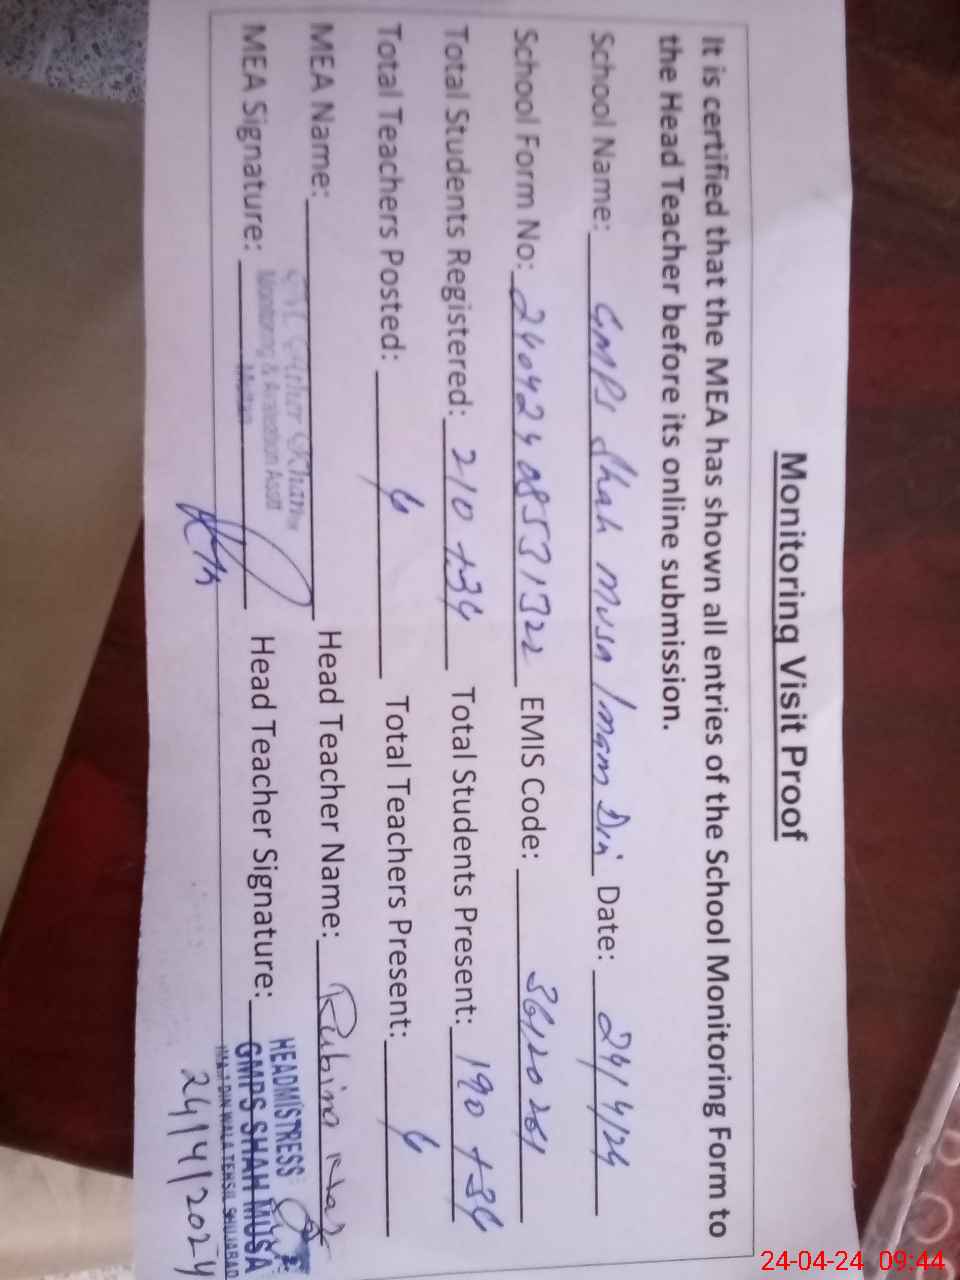 Monitoring Visit Proof
It is certified that the MEA has shown all entries of the School Monitoring Form to
the Head Teacher before its online submission.
School Name: GMPS Shah Musa Imam Din Date: 24/4/24
School Form No: EMIS Code: 36120261
Total Students Registered: 210 +34 Total Students Present: 190 +34
Total Teachers Posted: 6 Total Teachers Present: 6
MEA Name: Khan Head Teacher Name: Rubina Naz
Monitoring & Asstt
Multan
MEA Signature: Head Teacher Signature:
HEADMISTRESS
GMPS SHAH MUSA
DIN WALA TEHSIL SHUJABAD
24/4/2024
24-04-24 09:44